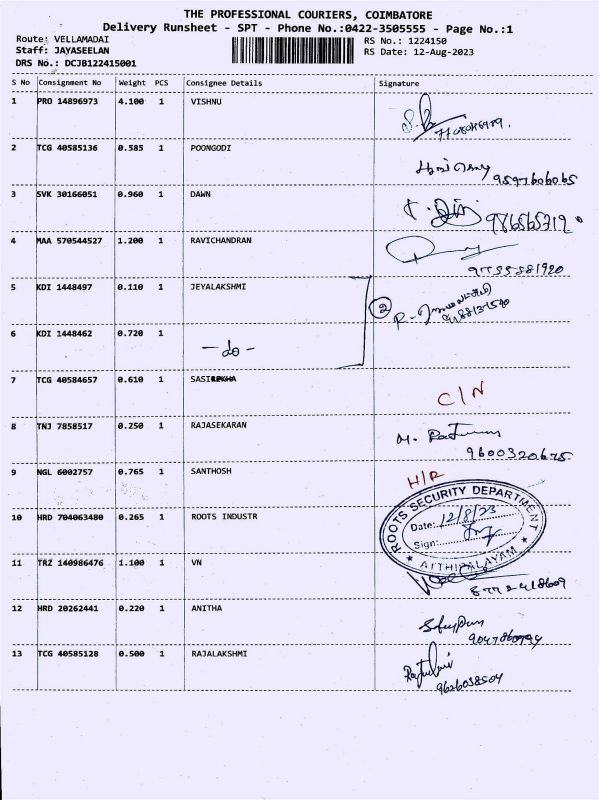 THE PROFESSIONAL COURIERS, COIMBATORE
Delivery Runsheet - SPT - Phone No.:0422-3505555 - Page No.:1
Route: VELLAMADAI RS No.: 1224150
Staff: JAYASEELAN RS Date: 12-Aug-2023
DRS No.: DCJB122415001
S No Consignment No Weight PCS Consignee Details Signature
1 PRO 14896973 4.100 1 VISHNU
2 TCG 40585136 0.585 1 POONGODI
9597606065
3 SVK 30166051 0.960 1 DAWN
986565712
4 MAA 570544527 1.200 1 RAVICHANDRAN
9755581920
5 KDI 1448497 0.110 1 JEYALAKSHMI
2
6 KDI 1448462 0.720 1
- do -
7 TCG 40584657 0.610 1 SASIREKHA
C/N
8 TNJ 7858517 0.250 1 RAJASEKARAN
9600320675
9 NGL 6002757 0.765 1 SANTHOSH H/R
10 HRD 704063480 0.265 1 ROOTS INDUSTR
ROOTS SECURITY DEPARTMENT
Date: 12/8/23
Sign:
ATTHIPALAYAM
11 TRZ 140986476 1.100 1 VN
8772418609
12 HRD 20262441 0.220 1 ANITHA
13 TCG 40585128 0.500 1 RAJALAKSHMI
9626038504